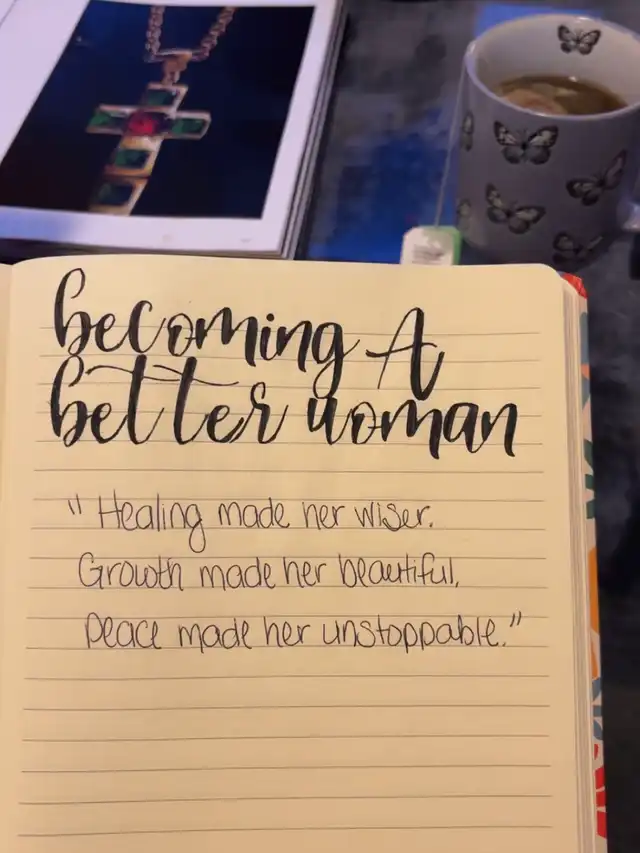 becoming A
better woman
" Healing made her wiser.
Growth made her beautiful,
peace made her unstoppable."